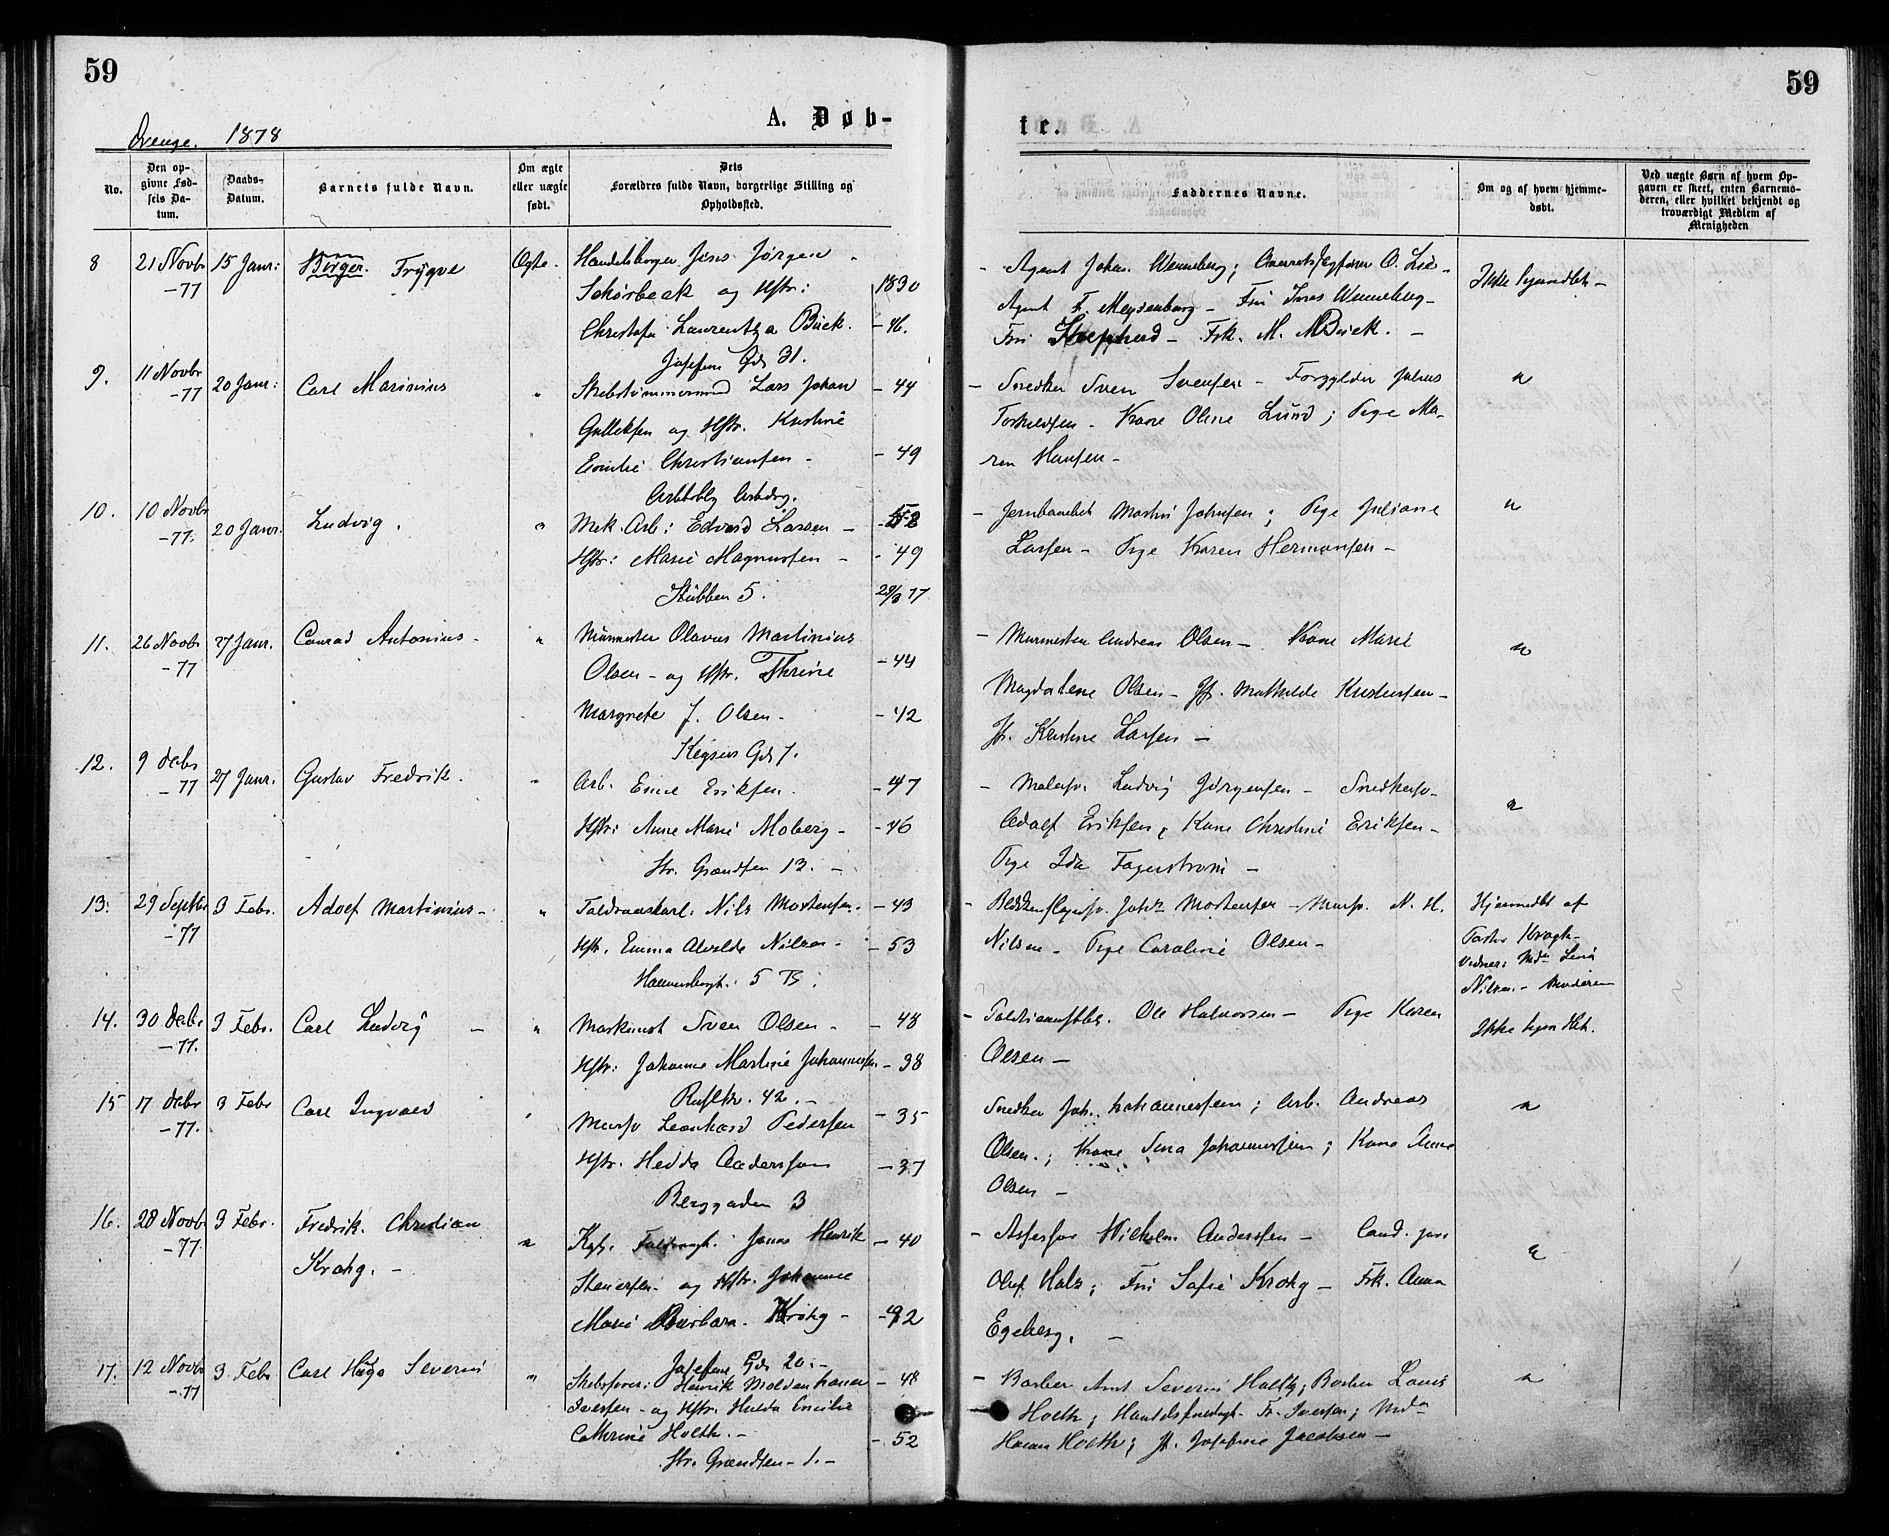 59
59
A. Døb-
te.
Drenge. 1878
No.
Den opgivne Fødsels Datum.
Daabs-Datum.
Barnets fulde Navn.
Om ægte eller uægte født.
Dets Forældres fulde Navn, borgerlige Stilling og Opholdssted.
Faddernes Navne.
Om og af hvem hjemmedøbt.
Ved uægte Børn af hvem Opgaven er skeet, enten Barnemoderen, eller hvilket bekjendt og troværdigt Medlem af Menigheden
8 21 Novbr -77 15 Janr: Birger. Trygve Ægte.
Handelsborger Jens Jørgen
Schørbeck og Hstr: 1830
Christofa Laurentza Büek. - 46.
Josefine Gd 31.
- Agent Johan Wenneberg; O. Lie -
Agent F. Meydenburg - Fru Inas Wenneberg -
Fru - Frk. M. M Büek. -
Ikke hjemdbt -
9. 11 Novbr -77 20 Janr: Carl Marinius "
Skibstømmermd Lars Johan - 44
Gulleksen og Hstr. Kristine
Emilie Christiansen - - 49
- Snedker Sven Svensen - Forgylder Julius
Torkildsen - Kone Oline Lund; Pige Ma-
ren Hansen -
"
10. 10 Novbr -77. 20 Janr. Ludvig. "
Mek. Arb: Edvard Larsen -
Hstr: Marie Magnussen - - 49
Stubben 5. 29/3 77
- Jernbanebet Martin Johnsen; Pige Juliane
Larsen - Pige Karen Hermansen -
"
11. 26 Novbr -77 27 Janr. Conrad Antonius - "
Murmester Olavus Martinius
Olsen - og Hstr. Thrine - 44
Margrete J. Olsen - - 42
Keysers Gd 7.
- Murmester Andreas Olsen - Kone Marie
Magdalene Olsen - Jfr. Mathilde Kristensen -
Jfr. Kristine Larsen -
"
12. 9 Decbr -77 27 Janr. Gustav Fredrik. "
Arb. Emil Eriksen. - 47
Hstr: Anne Marie Moberg - - 46
Str. Grændsen 13. -
- Malersv. Ludvig Jørgensen - Snedkersv.
Adolf Eriksen; Kone Christine Eriksen -
Pige Ida Fagerstrøm -
"
13. 29 Septbr -77 3 Febr. Adolf Martinius - "
Toldvæskarl. Nils Mortensen. - 43
Hstr. Emma Alvilde Nilsen - - 53
Hammersborgt. 5 B.
- Johs Mortensen - Mursv. N. H.
Nilsen - Pige Caroline Olsen -
Hjemmedbt af
Pastor Krogh -
Vidner: Mda Lina
Nilsen - Moderen
14. 30 Decbr -77. 3 Febr. Carl Ludvig - "
Maskinist Sven Olsen - - 48
Hstr: Johanne Martine Johannessen - 38
- Ole Halvorsen - Pige Karen
Olsen -
Ikke hjemdbt.
15 17 Decbr -77. 3 Febr Carl Ingvald "
Mursv Leonhard Pedersen - 35
Hstr. Hedda Andersson - 37
Berggaden 3
Snedker Joh. Johannessen; Arb. Andreas
Olsen.; Kone Sina Johannessen; Kone Anne
Olsen -
"
16. 28 Novbr -77. 3 Febr. Fredrik. Christian
Krohg. - "
Kgl. Jonas Henrik - 40
Stenersen - og Hstr. Johanne
Marie Barbara - Krohg - - 42
Josefine Gd. 20. -
- Assessor Wilhelm Anderssen - Cand. juris
Oluf Holz; Fru Sofie Krohg - Frk. Anna
Egeberg. -
"
17. 12 Novbr -77 3 Febr Carl Hugo Severin "
Skibsfører: Henrik Moldenhauer - 48
Iversen - og Hstr. Hulda Emilie
Cathrine Holth. - - 52
Str. Grændsen - 1. -
- Barber Ant Severin Holth; Barber Louis
Holth; Handelsfuldmgt. Fr. Iversen; Mda
Holth; Jf. Josefine Jacobsen -
"